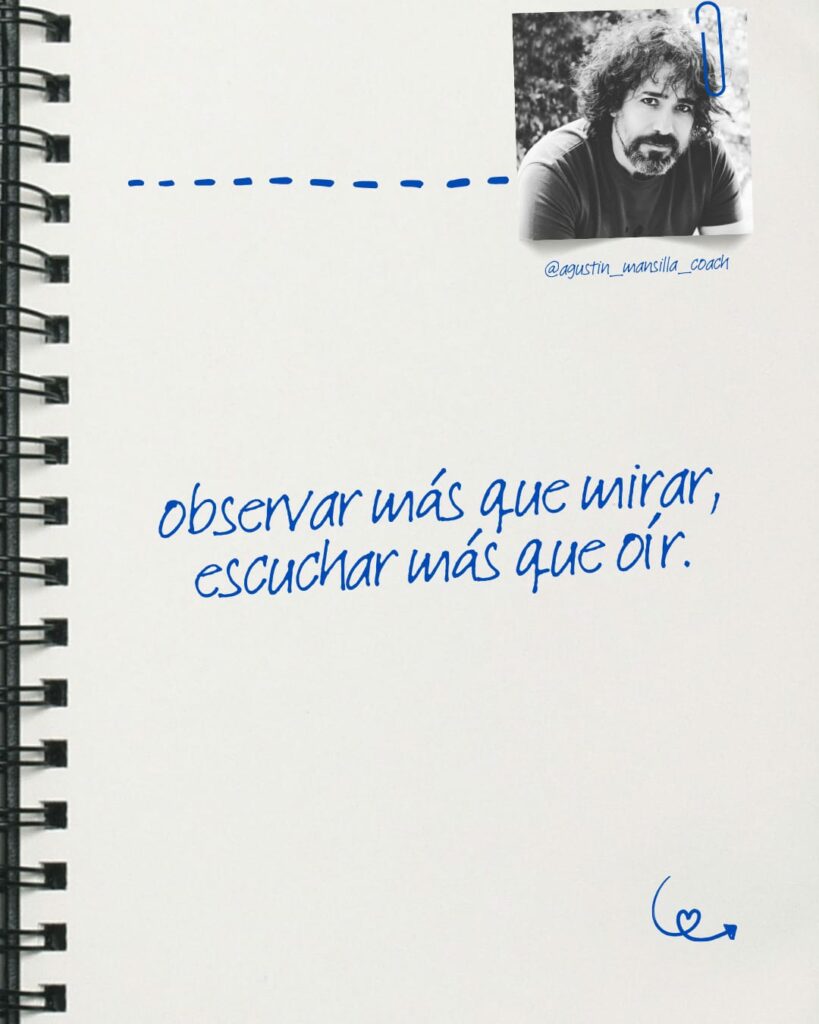 @agustin_mansilla_coach
observar más que mirar,
escuchar más que oír.